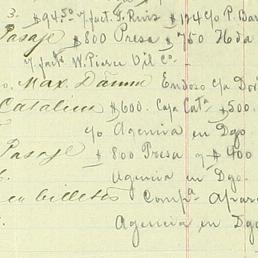 3. $94.50 7/fact. J. Ruiz $124 c/o P. Bar
Pasaje $800 Presa $750 Hda
7/facts W. Pierce Oil Co.
o. Max. Damm Endoso c/o Do
Catalina $600. Caja Cata $500.
c/o Agencia en Dgo
Pasaje $800 Presa y $400
Agencia en Dgo.
en billetes Compa Apar
Agencia en Dgo